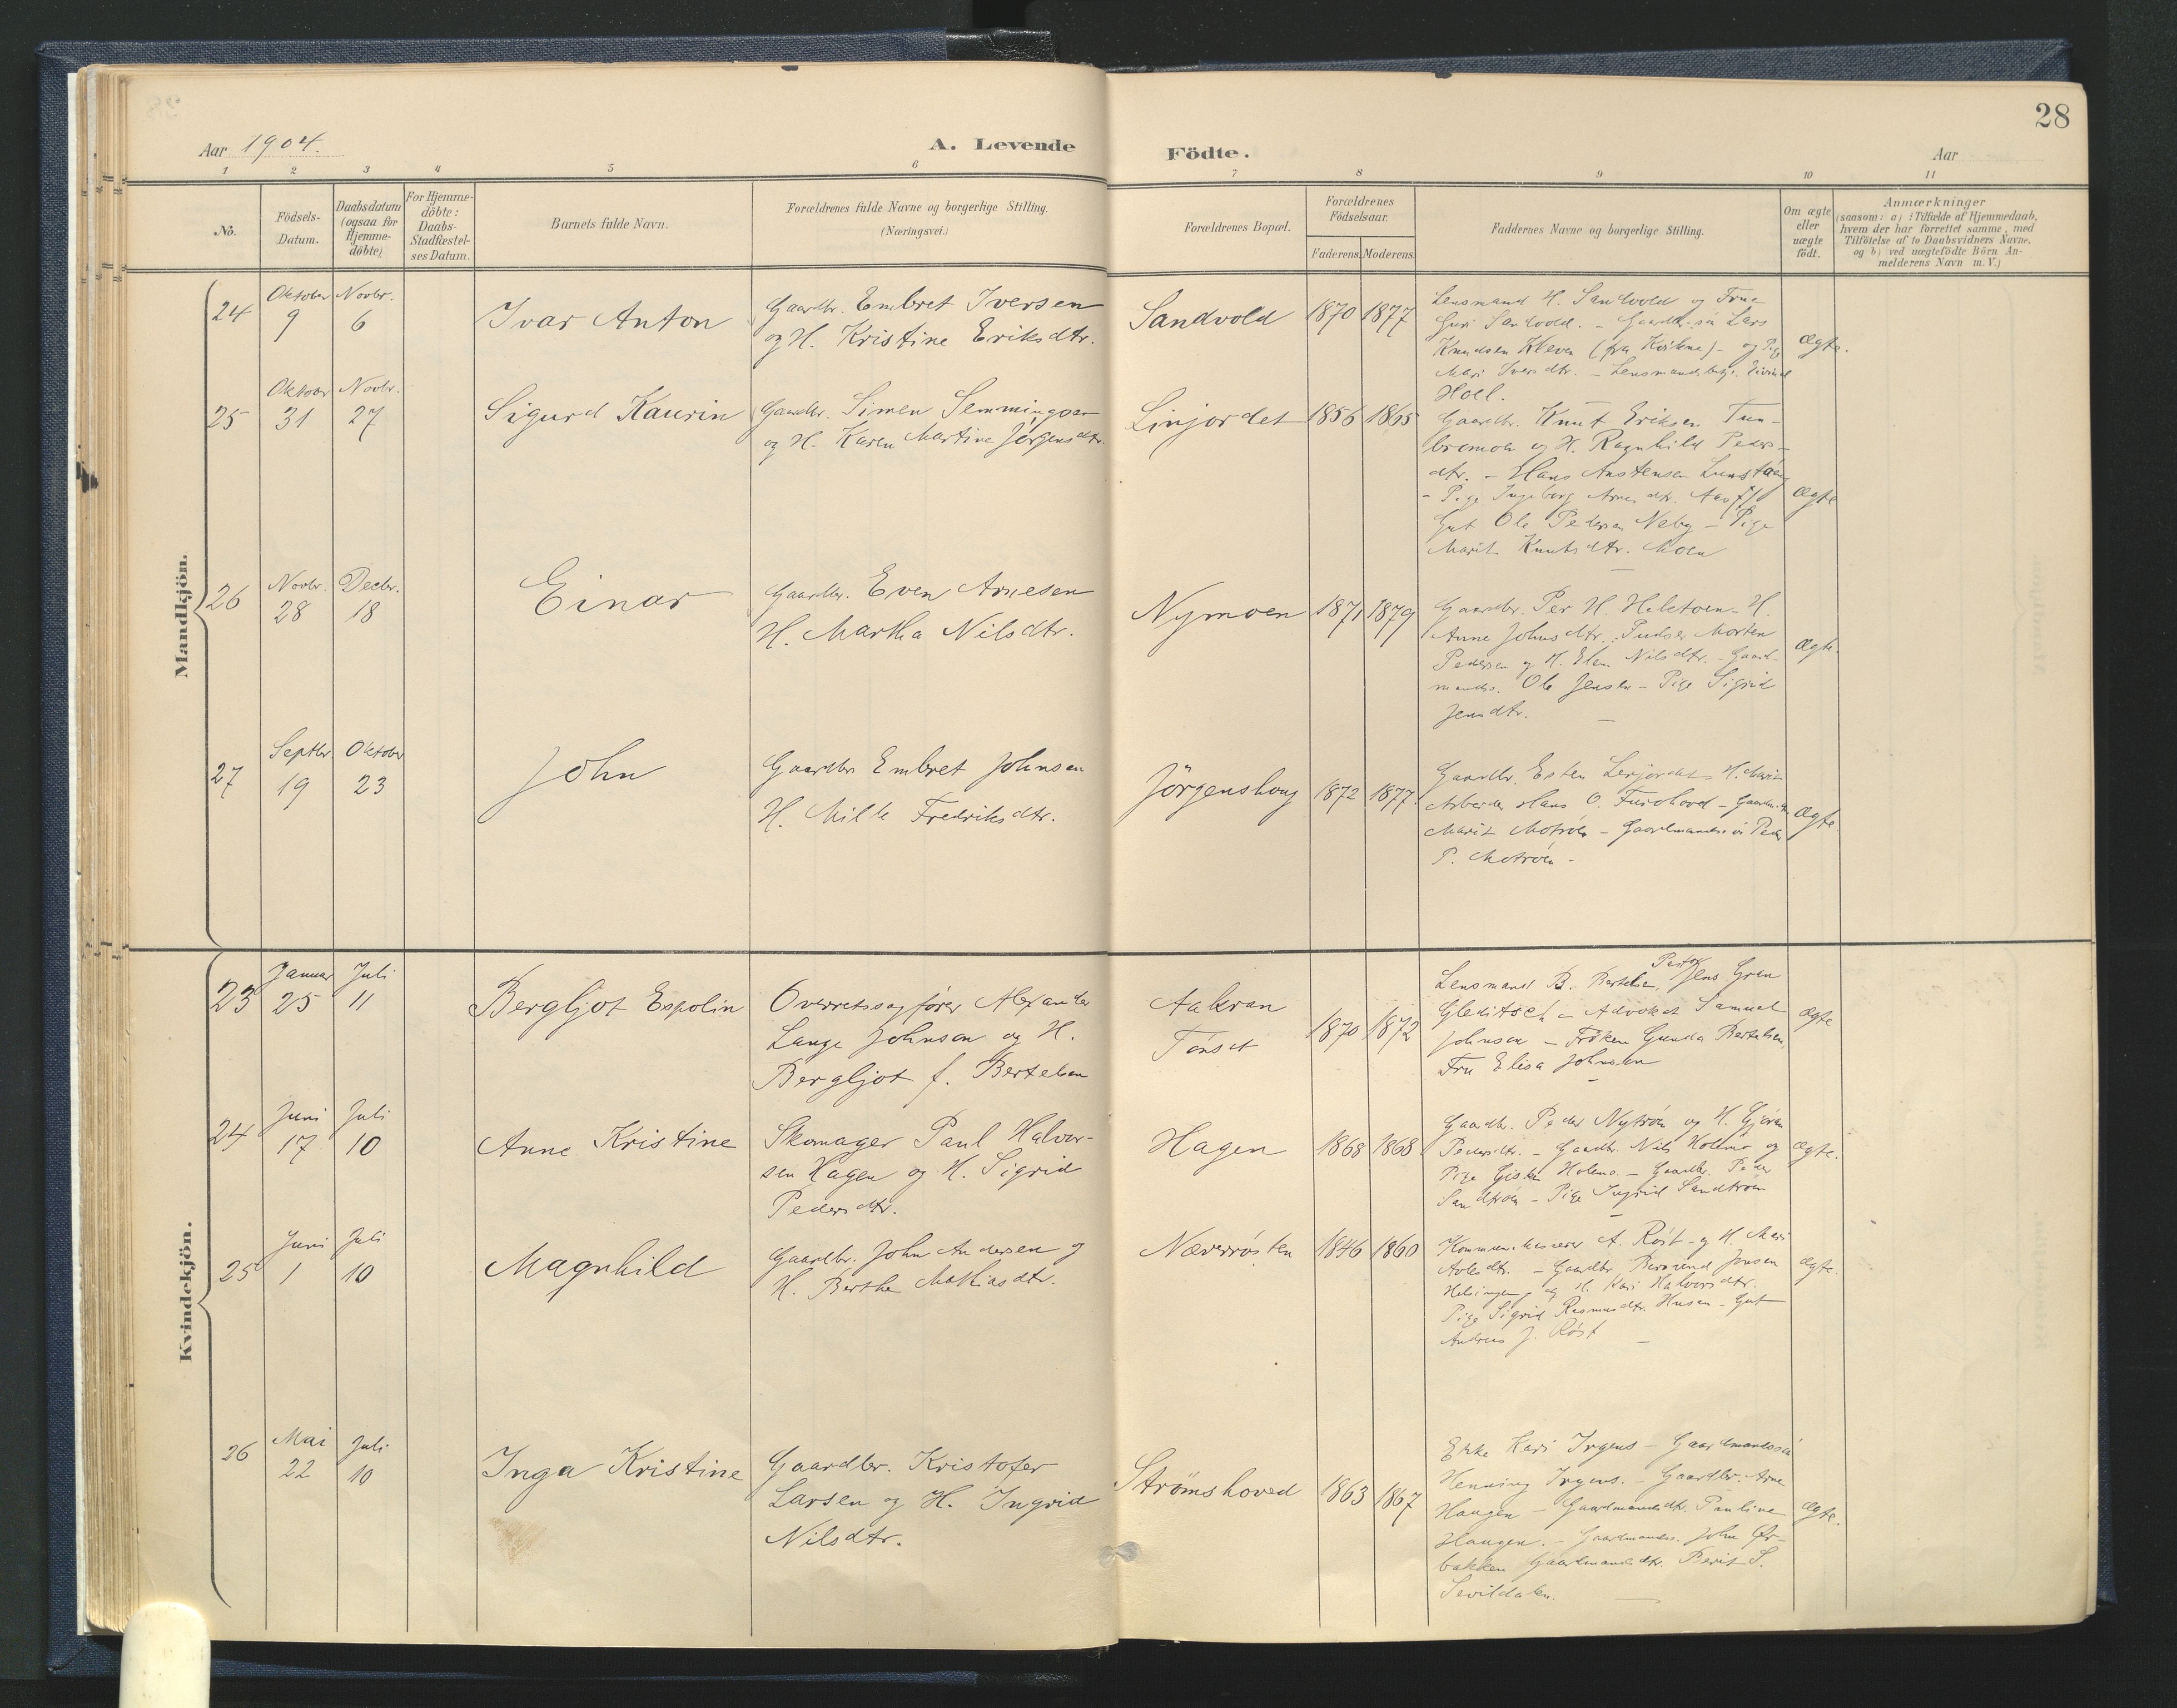 28
Aar 1904.
A. Levende Födte.
Aar
1 2 3 4 5 6 7 8 9 10 11
No.
Födsels-Datum.
Daabsdatum (ogsaa for Hjemme-döbte)
For Hjemme-döbte: Daabs-Stadfæstel-ses Datum.
Barnets fulde Navn.
Forældrenes fulde Navne og borgerlige Stilling.
(Næringsvei.)
Forældrenes Bopæl.
Forældrenes Födselsaar.
Faderens. Moderens.
Faddernes Navne og borgerlige Stilling.
Om ægte eller uægte födt.
Anmærkninger
(saasom: a) i Tilfælde af Hjemmedaab,
hvem der har forrettet samme, med
Tilföielse af to Daabsvidners Navne,
og b) ved uægtefödte Börn An-
melderens Navn m. V.)
Mandkjön.
24
Oktober 9
Novbr. 6
Ivar Anton
Gaardbr. Embret Iversen
og H. Kristine Eriksdtr.
Sandvold
1870 1877
Lensmand H. Sandvold og Frue
Guri Sandvold. - Lars
Knudsen Kleven (fra Kvikne) - og Pige
Mari Iversdtr. - Eivind
Hoel.
ægte.
25
Oktober 31
Novbr. 27
Sigurd Kaurin
Gaardbr. Simen Semmingsen
og H. Karen Martine Jörgensdtr.
Linjordet
1856 1865
Gaardbr. Knut Eriksen Tun-
bromoen og H. Ragnhild Peders-
dtr. - Hans Anstensen
- Pige Ingeborg Arnesdtr.
Gut Ole Pedersen Neby - Pige
Marit Knutsdtr. Moen
ægte
26
Novbr. 28
Decbr. 18
Einar
Gaardbr. Even Arnesen
H. Martha Nilsdtr.
Nymoen
1871 1879
Gaardbr. Per H. - H.
Anne Johnsdtr. Morten
Pedersen og H. Elen Nilsdtr. - Gaard-
mands. Ole Jensen - Pige Sigrid
Jensdtr.
ægte.
27
Septbr. 19
Oktober 23
John
Gaardbr. Embret Johnsen
H. Milla Fredriksdtr.
Jörgenshaug
1872 1877.
Gaardbr. Esten H. Marit
Arbeider Hans O. Furuhovd -
Marit Motrøen - Peder
P. Motrøen -
ægte.
Kvindekjön.
23
Januar 25
Juli 11
Bergljot Espolin
Overretssagfører Alexander
Lange Johnson og H.
Bergljot f. Bertelsen
Aakran
Tönset
1870 1872
Lensmand B. Bertelsen, Pastor Jens Gran
Gleditsch - Advokat Samuel
Johnson - Frøken Gunda Bertelsen,
Fru Elisa Johnson
ægte
24
Juni 17
Juli 10
Anne Kristine
Skomager Paul Halvor-
sen Hagen og H. Sigrid
Pedersdtr.
Hagen
1868 1868
Gaardbr. Peder Nytrøen og H. Gjøren
Pedersdtr. - Gaardbr. Nils Holmo og
Pige Holmo. - Gaardbr. Peder
Sandtrøen - Pige Ingrid Sandtrøen
ægte.
25
Juni 1
Juli 10
Magnhild
Gaardbr. John Andersen og
H. Berthe Mathiasdtr.
Næverrösten
1846 1860
A. Röst - og H. Mari
- Gaardbr. Jonsen
og H. Kari Halvorsdtr.
Pige Sigrid Rasmusdtr. Husan - Gut
Andreas J. Röst
ægte.
26
Mai 22
Juli 10
Inga Kristine
Gaardbr. Kristofer
Larsen og H. Ingrid
Nilsdtr.
Strømshoved
1863 1867
Enke Kari Irgens - Gaardmandssön
Henning Irgens. - Gaardbr. Arne
Haugen - Gaardmandsdtr. Pauline
Haugen. - Gaardmands. John Ør-
bakken Gaardmandsdtr. Berit S.
Sevildalen.
ægte.